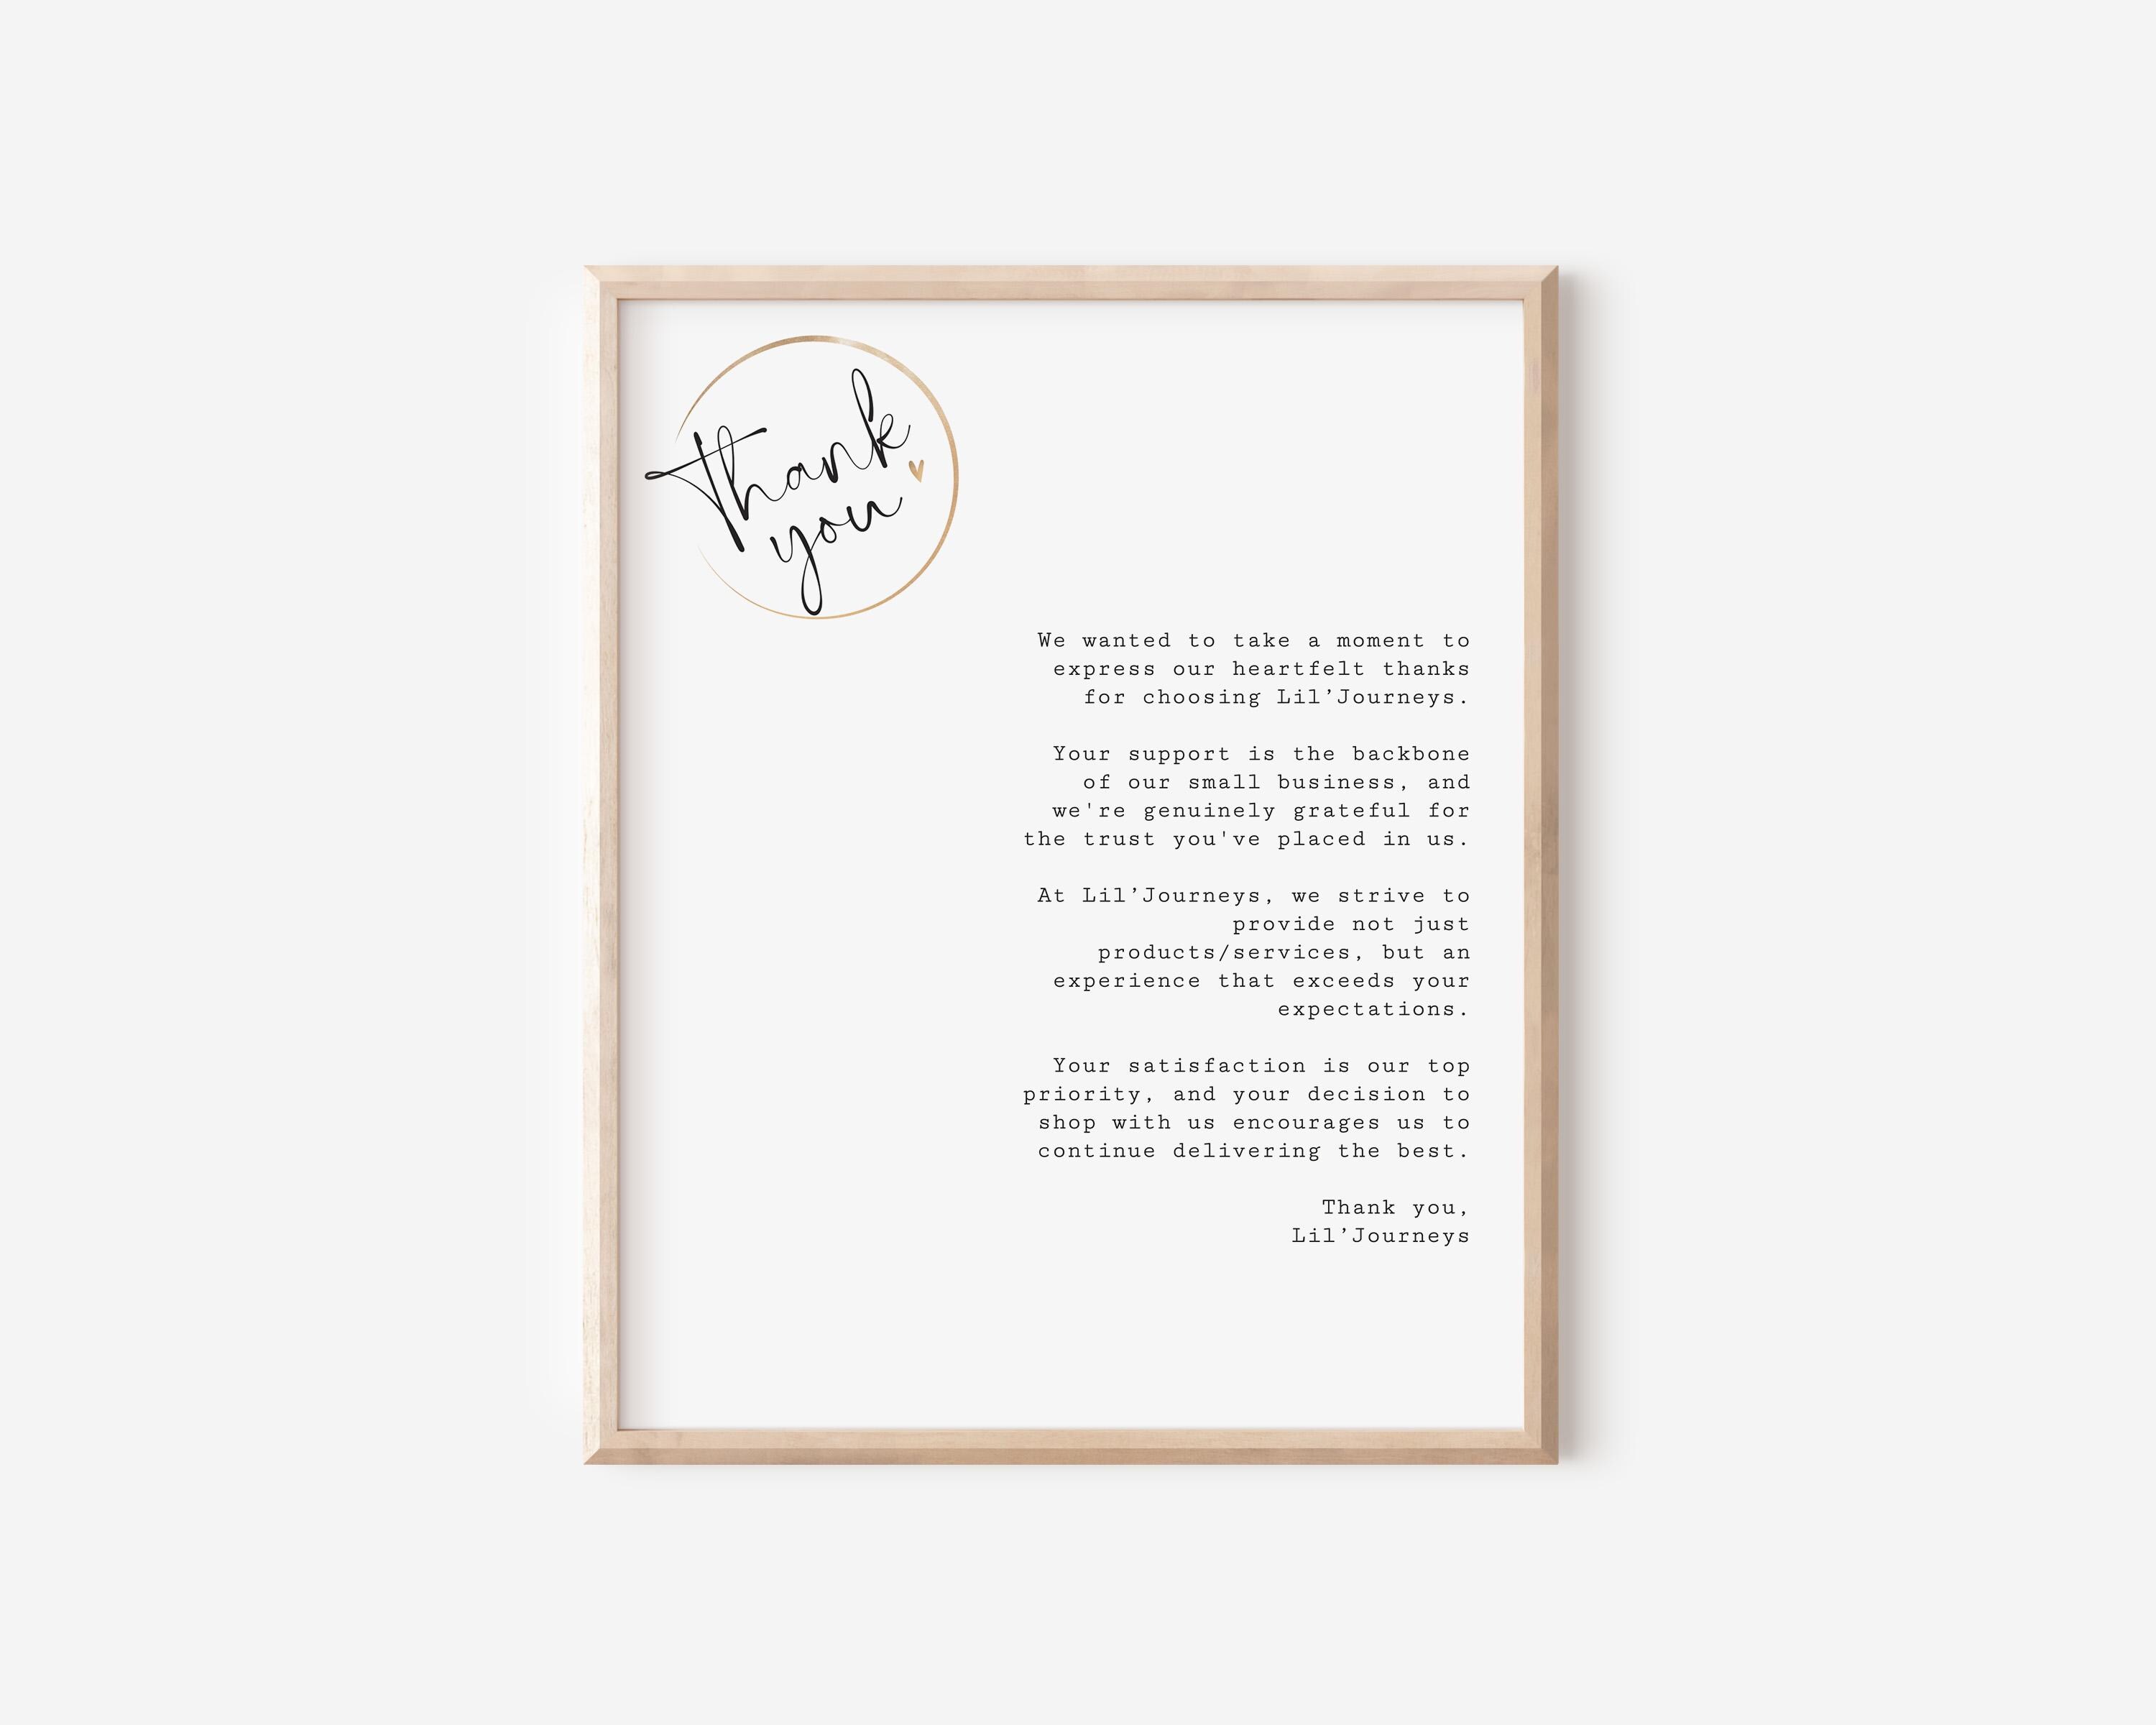 Thank
you
We wanted to take a moment to
express our heartfelt thanks
for choosing Lil’Journeys.
Your support is the backbone
of our small business, and
we're genuinely grateful for
the trust you've placed in us.
At Lil’Journeys, we strive to
provide not just
products/services, but an
experience that exceeds your
expectations.
Your satisfaction is our top
priority, and your decision to
shop with us encourages us to
continue delivering the best.
Thank you,
Lil’Journeys